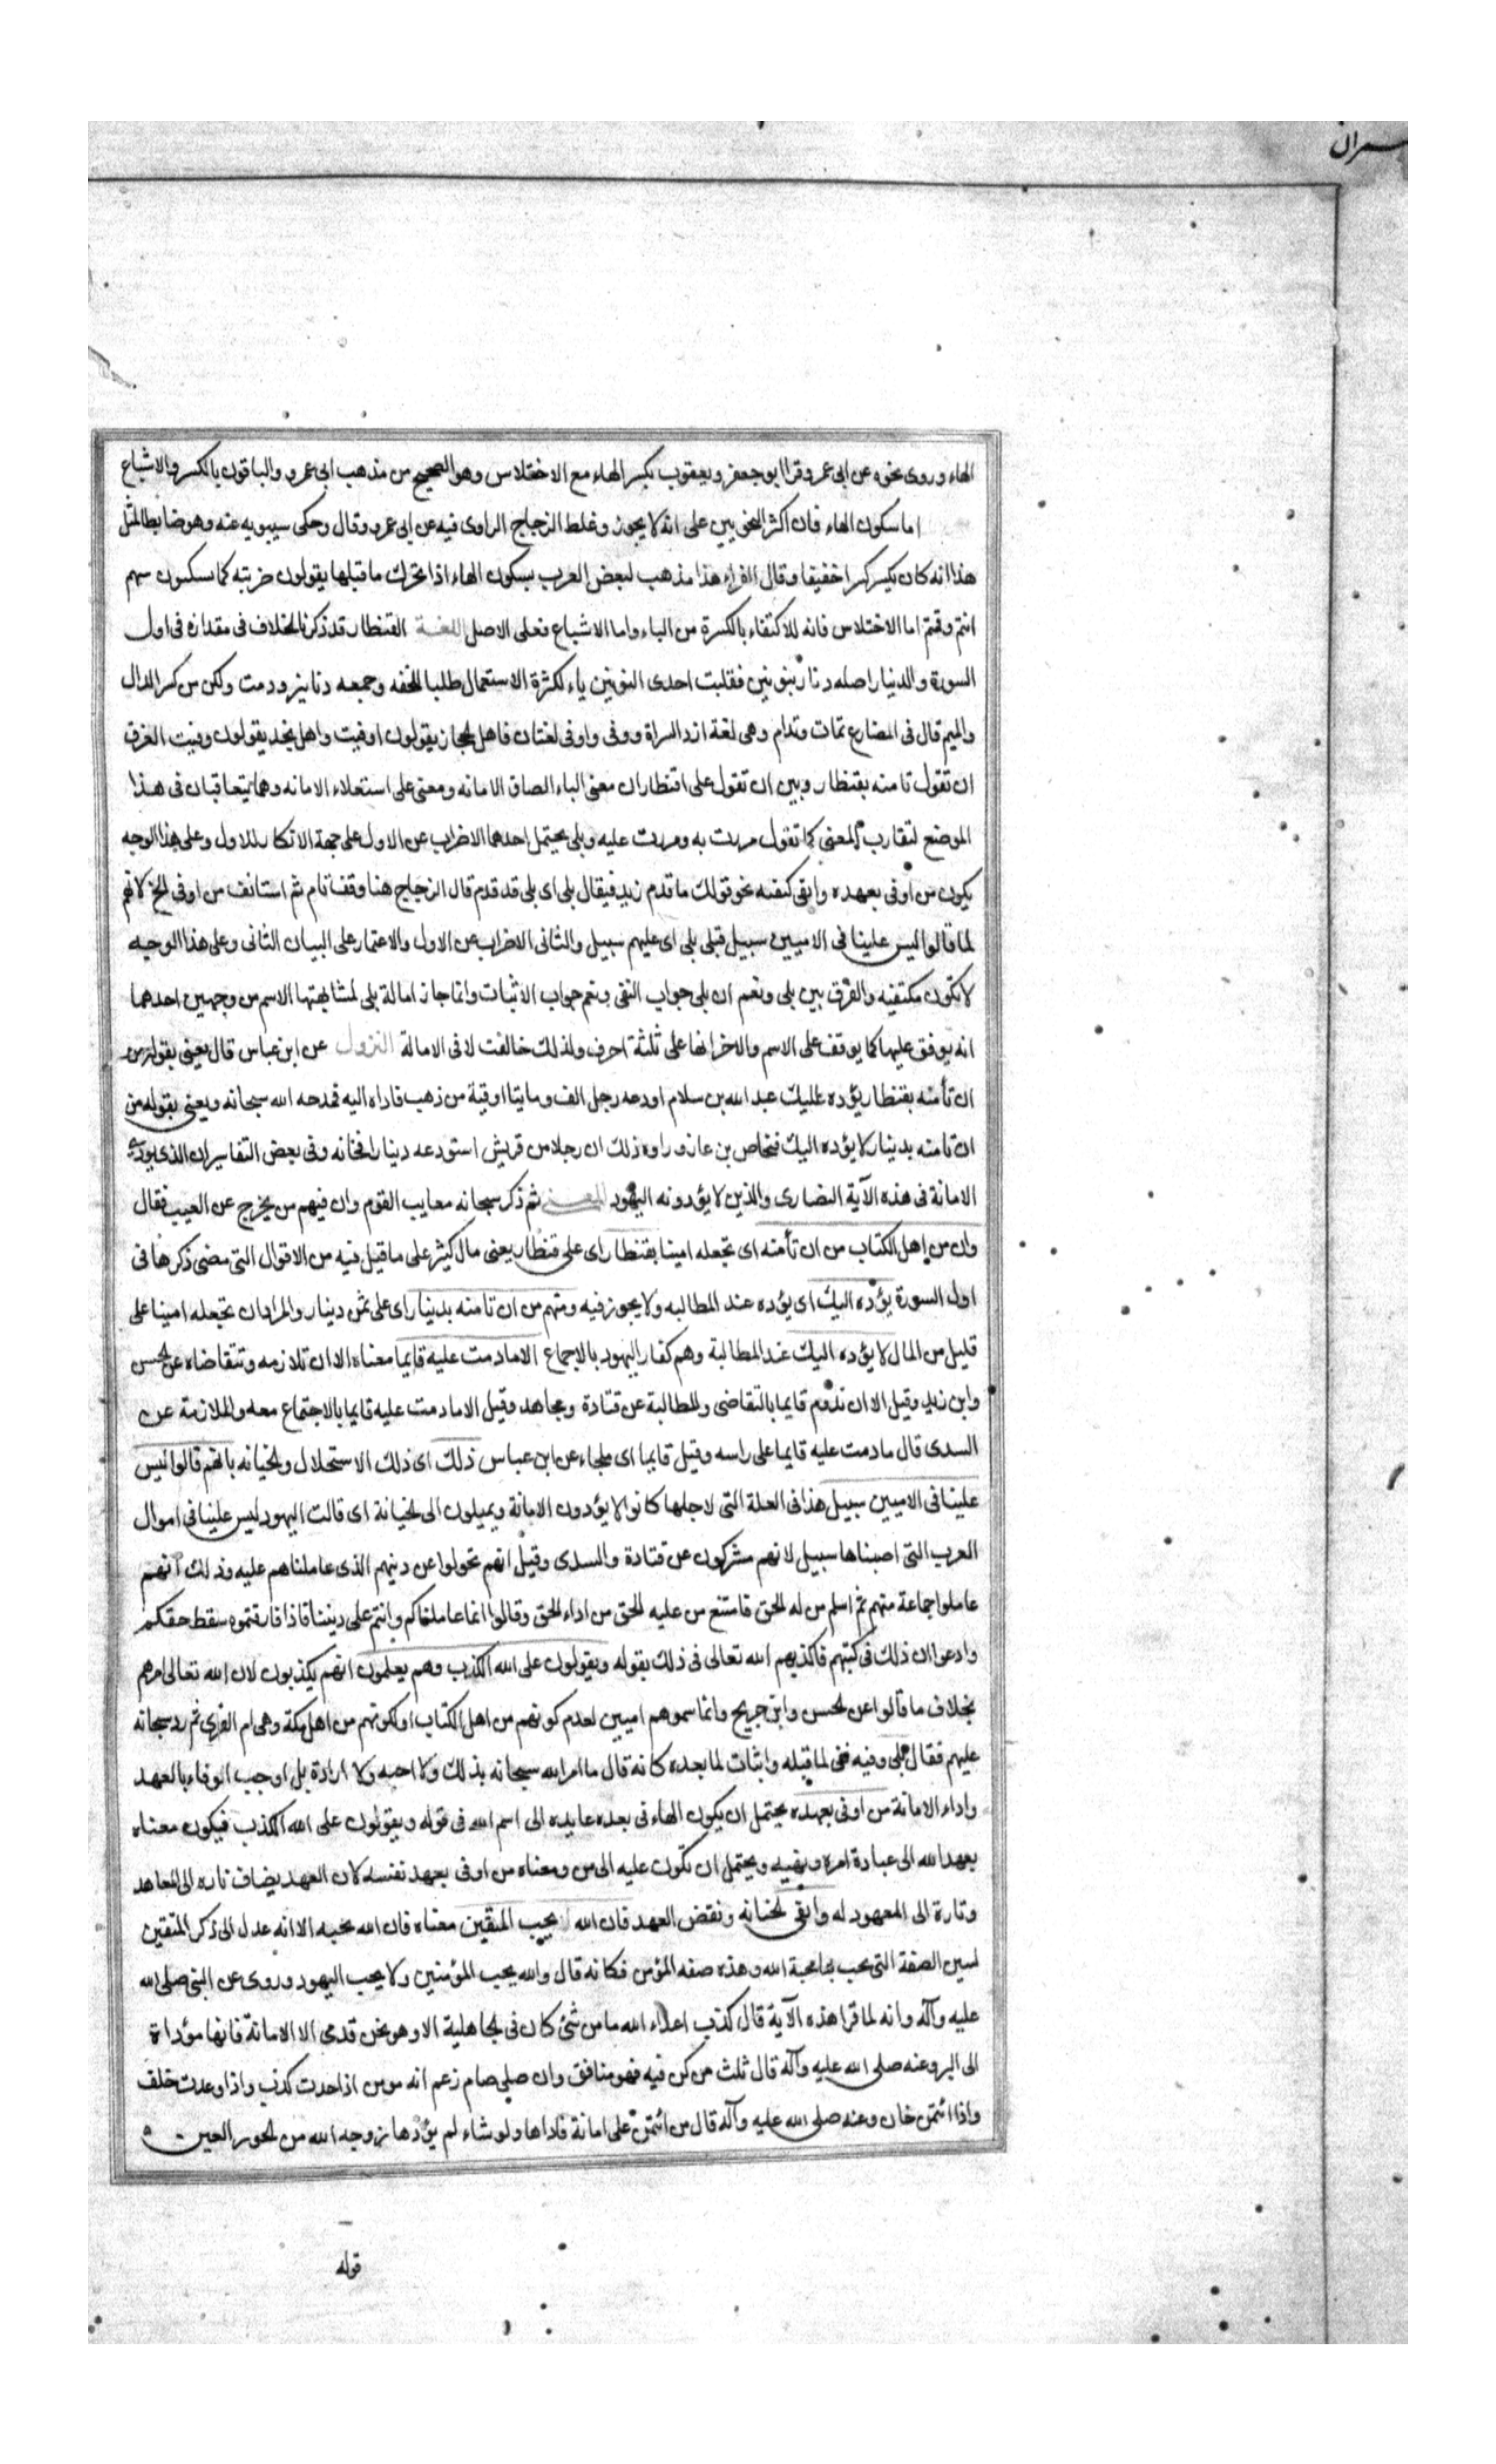 الهاء وروى نحوه عن ابى عمرو وقرا ابو جعفر ويعقوب بكسر الهاء مع الاختلاس وهو الصحيح من مذهب ابى عمرو والباقون بالكسر والاشباع
اما سكون الهاء فان اكثر النحويين على انه لا يجوز وغلط الزجاج الراوى فيه عن ابى عمرو وقال وحكى سيبويه عنه وهو ضابط لمثل
هذا انه كان يكسر كسرا خفيفا وقال الفراء هذا مذهب لبعض العرب يسكون الهاء اذا تحرك ما قبلها يقولون ضربته كما يسكنون ميم
انتم وقمتم اما الاختلاس فانه للاكتفاء بالكسرة من الياء واما الاشباع فعلى الاصل اللغـة القنطار قد ذكرنا الخلاف فى مقداره فى اول
السورة والدنيار اصله دنار بنونين فقلبت احدى النونين ياء لكثرة الاستعمال طلبا للخفه وجمعه دنانيز ودمت ولكن من كسر الدال
والميم قال فى المضارع تمات وتدام وهى لغة ازد السراة ووفى واوفى لغتان فاهل الحجاز يقولون اوفيت واهل نجد يقولون وفيت الفرق
ان تقول تامنه بقنطار وبين ان تقول على قنطار ان معنى الباء الصاق الامانه ومعنى على استعلاء الامانه وهما يتعاقبان فى هذا
الموضع لتقارب المعنى كما تقول مررت به ومررت عليه وبلى يحتمل احدهما الاضراب عن الاول على جهة الانكار للاول وعلى هذا الوجه
يكون من اوفى بعهده واتقى كنفيه نحو قولك ما قدم زيد فيقال بلى اى بلى قد قدم قال الزجاج هنا وقف تام ثم استانف من اوفى الخ لانهم
لما قالوا ليس علينا فى الاميين سبيل قبلى بلى اى عليهم سبيل والثانى الاضراب عن الاول والاعتمار على البيان الثانى وعلى هذا الوجه
لا تكون مكتفيه والفرق بين بلى ونعم ان بلى جواب النفى ونعم جواب الاثبات وانما جاز امالة بلى لمشابهتها الاسم من وجهين احدهما
انه يوفق عليها كما يوقف على الاسم والاخر انها على ثلثة احرف ولذلك خالفت لا فى الامالة النزول عن ابن عباس قال يعنى بقوله من
ان تأمنه بقنطار يؤده اليك عبد الله بن سلام اودعه رجل الف ومايتا اوقية من ذهب فاداه اليه فمدحه الله سبحانه ويعنى بقوله من
ان تامنه بدينار لا يؤده اليك فنحاص بن عازوراوه ذلك ان رجلا من قريش استودعه دينارا فخانه وفى بعض التفاسير ان الذى يؤدى
الامانة فى هذه الآية النصارى والذين لا يؤدونه اليهود المعـنى ثم ذكر سبحانه معايب القوم وان فيهم من يخرج عن العيب فقال
وان من اهل الكتاب من ان تأمنه اى تجعله امينا بقنطار اى على قنطار يعنى مال كثير على ما قيل فيه من الاقوال التى مضى ذكرها فى
اول السورة يؤده اليك اى يؤده عند المطالبه ولا يجوز فيه ومنهم من ان تامنه بدينار اى على ثمن دينار والمراد ان تجعله امينا على
قليل من المال لا يؤده اليك عند المطالبة وهم كفار اليهود بالاجماع الا ما دمت عليه قايما معناه الا ان تلازمه وتتقاضاه عن الحسن
وابن زيد وقيل الا ان تدوم قايما بالتقاضى والمطالبة عن قتادة ومجاهد وقيل الا ما دمت عليه قايما بالاجتماع معه والملازمة عن
السدى قال ما دمت عليه قايما على راسه وقيل قايما اى ملجاء عن ابن عباس ذلك اى ذلك الاستحلال والخيانه بانهم قالوا ليس
علينا فى الاميين سبيل هذا فى العلة التى لاجلها كانوا لا يؤدون الامانة ويميلون الى الخيانة اى قالت اليهود ليس علينا فى اموال
العرب التى اصبناها سبيل لانهم مشركون عن قتادة والسدى وقيل انهم تحولوا عن دينهم الذى عاملناهم عليه وذلك انهم
عاملوا جماعة منهم ثم اسلم من له الحق فامتنع من عليه الحق من اداء الحق وقالوا انما عاملناكم وانتم على ديننا فاذا فارقتموه سقط حقكم
وادعوا ان ذلك فى كتبهم فاكذبهم الله تعالى فى ذلك بقوله ويقولون على الله الكذب وهم يعلمون انهم يكذبون لان الله تعالى امرهم
بخلاف ما قالوا عن الحسن وابن جريح وانما سموهم اميين لعدم كونهم من اهل الكتاب او لكونهم من اهل مكة وهى ام القرى ثم رد سبحانه
عليهم فقال بلى وفيه نفى لما قبله واثبات لما بعده كانه قال ما امر الله سبحانه بذلك ولا احبه ولا ارادة بل اوجب الوفاء بالعهد
واداء الامانة من اوفى بعهده يحتمل ان يكون الهاء فى بعده عايده الى اسم الله فى قوله ويقولون على الله الكذب فيكون معناه
بعهد الله الى عبادة امره ونهيه ويحتمل ان تكون عليه الى من ومعناه من اوفى بعهد نفسه لان العهد يضاف تاره الى المعاهد
وتارة الى المعهود له واتقى الخيانه ونقض العهد فان الله يحب المتقين معناه فان الله يحبه الا انه عدل الى ذكر المتقين
لسين الصفة التى يحب بها محبة الله وهذه صفه المؤمن فكانه قال والله يحب المؤمنين ولا يحب اليهود وروى عن النبى صلى الله
عليه وآله وانه لما قرا هذه الآية قال كذب اعداء الله ما من شئ كان فى الجاهلية الا وهو تحت قدمى الا الامانة فانها مؤداة
الى البر وعنه صلى الله عليه وآله قال ثلث من كن فيه فهو منافق وان صلى صام زعم انه مومن اذا حدث كذب واذا وعدت خلف
واذا ائتمن خان وعنه صلى الله عليه وآله قال من ائتمن على امانة فاداها ولو شاء لم يؤدها زوجه الله من الحور العين
قوله